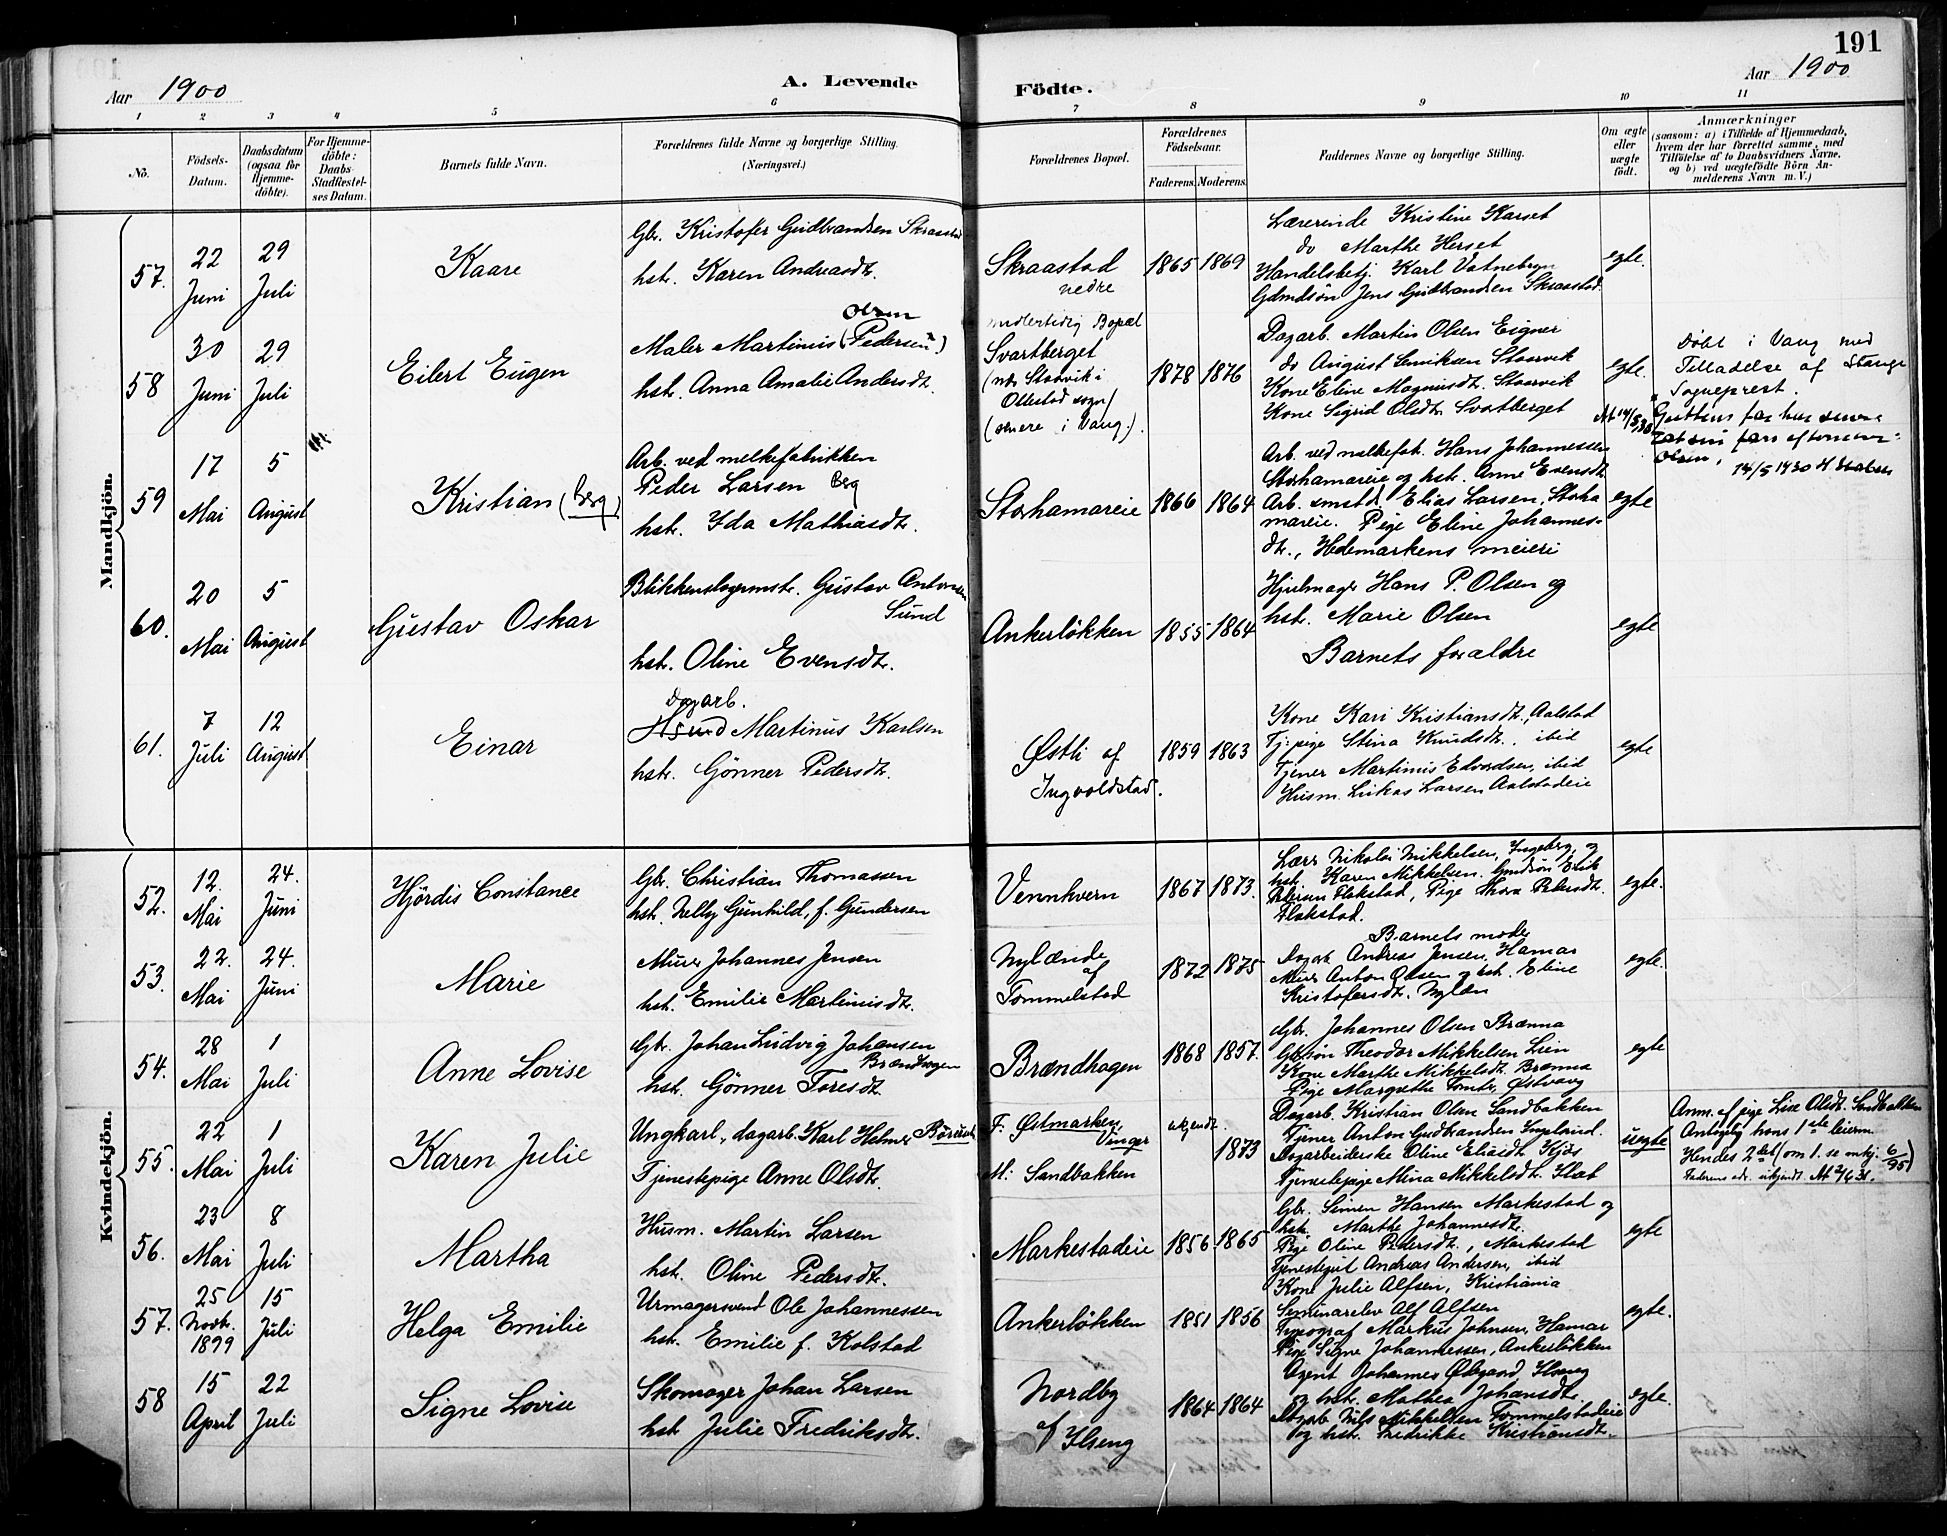 191
Aar 1900
A. Levende
Födte.
Aar 1900
1 2 3 4 5 6 7 8 9 10 11
No.
Födsels-
Datum.
Daabsdatum
(ogsaa for
Hjemme-
döbte).
For Hjemme-
döbte:
Daabs-
Stadfæstel-
ses Datum.
Barnets fulde Navn.
Forældrenes fulde Navne og borgerlige Stilling.
(Næringsvei.)
Forældrenes Bopæl.
Forældrenes
Födselsaar.
Faderens. Moderens.
Faddernes Navne og borgerlige Stilling.
Om ægte
eller
uægte
födt.
Anmærkninger
(saasom: a) i Tilfælde af Hjemmedaab,
hvem der har forrettet samme, med
Tilföielse af to Daabsvidners Navne,
og b) ved uægtefödte Börn An-
melderens Navn m. V.)
Mandkjön.
57.
22
Juni
29
Juli
Kaare
Gbr. Kristofer Gudbrandsen Skraastad
hst. Karen Andreasdt.
Skraastad
nedre
1865 1869
Lærerinde Kristine Karset
do Marthe Herset
Handelsbetj. Karl Vatnebryn
Gdmdsön Jens Gudbrandsen Skraastad
egte.
58
30
Juni
29
Juli
Eilert Eugen
Olsen
Maler Martinius (Pedersen)
hst. Anna Amalie Andersdt.
midlertidig Bopæl
Svartberget
(nds Storvik i
Ottestad sogn)
(senere i Vang.)
1878 1876
Dagarb. Martin Olsen Eigner
do August Storvik
Kone Eline Magnusdt. Storvik
Kone Sigrid Olsdt. Svartberget
egte.
Döbt i Vang med
Tilladelse af Stange
Sogneprest.
Olsen, 14/5 1930
59
17
Mai
5
August
Kristian (Berg)
Arb. ved melkefabrikken
Peder Larsen Berg
hst. Ida Mathiasdt.
Storhamareie
1866 1864
Arb. ved melkefab. Hans Johannessen
Storhamareie og hst. Anne Evensdt.
Arb. smstd. Elias Larsen, Storha
mareie. Pige Eline Johannes-
dt., Hedemarkens meieri
egte
60.
20
Mai
5
August
Gustav Oskar
Blikkenslagermstr. Gustav Antonsen
Sund
hst. Oline Evensdt.
Ankerlökken
1855 1864
Hjulmager Hans P. Olsen og
hst. Marie Olsen
Barnets forældre
egte
61.
7
Juli
12
August
Einar
Dagarb.
Martinus Karlsen
hst. Gönner Pedersdt.
Østli af
Ingvoldstad.
1859 1863
Kone Kari Kristiansdt., Aalstad
Tj.pige Stina Knudsdt. ibid
Tjener Martinus Edvardsen, ibid
Husm. Lukas Larsen Aalstadeie
egte
Kvindekjön.
52.
12.
Mai
24.
Juni
Hjördis Constance
Gbr. Christian Thomasen
hst. Nelly Gunhild, f. Gundersen
Vennkvern
1867 1873.
Lærer Nikolai Mikkelsen, Ingeberg, og
hst. Karen Mikkelsen. Gmdsön Erik
Petersen Flakstad, Pige Thora Petersdt.
Flakstad.
egte.
53.
22.
Mai
24.
Juni
Marie
Murer Johannes Jensen
hst. Emilie Martinusdt.
Nylænde
af
Tommelstad
1872 1875
Barnets moder
Dagarb. Andreas Jensen, Hamar
Murer Anton Olsen og hst. Eline
Kristofersdt. Nylæn
egte.
54.
28
Mai
1
Juli
Anne Lovise
Gbr. Johan Ludvig Johansen
Brændhagen
hst. Gönner Toresdt.
Brændhagen
1868 1857.
Gbr. Johannes Olsen Brænna
Gbsön Theodor Mikkelsen Lien
Kone Marthe Mikkelsdt. Brænna
Pige Margrethe Tomter, Østvang
egte
55.
22
Mai
1
Juli
Karen Julie
Ungkarl, dagarb. Karl Helmer Börusen
Tjenestepige Anne Olsdt.
F. Østmarken,
Vinger
M: Sandbakken
ukjendt.
1873
Dagarb. Kristian Olsen Sandbakken
Tjener Anton Gudbrandsen Ingelund.
Dagarbeiderske Oline Eliasdt. Kjos
Tjenestepige Mina Mikkelsdt. Flat
uegte
Anm. af pige Lise Olsdt. Sandbakken
Antagelig hans 1ste leierm.
Hendes 2det (om 1. se omkj. 6/95)
56.
23
Mai
8
Juli
Martha
Husm. Martin Larsen
hst. Oline Pedersdt.
Markestadeie
1856 1865
Gbr. Simen Hansen Markestad og
hst. Marthe Johannesdt.
Pige Oline Petersdt., Markestad
Tjenestegut Andreas Andersen, ibid
Kone Julie Alfsen, Kristiania
egte
57.
25
Novbr.
1899
15
Juli
Helga Emilie
Urmagersvend Ole Johannessen
hst. Emilie f. Kolstad
Ankerlökken
1851 1856
Seminarelev Alf Alfsen
Typograf Markus Johnsen, Hamar
Pige Signe Johannessen, Ankerlökken
egte.
58
15
April
22
Juli
Signe Lovise
Skomager Johan Larsen
hst. Julie Fredriksdt.
Nordby
af Ilseng
1864 1864
Agent Johannes Ødegaard, Ilseng
og hst. Mathea Johansdt.
Dagarb. Nils Mikkelsen Tommelstadeie
og hst. Fredrikke Kristiansdt.
egte.